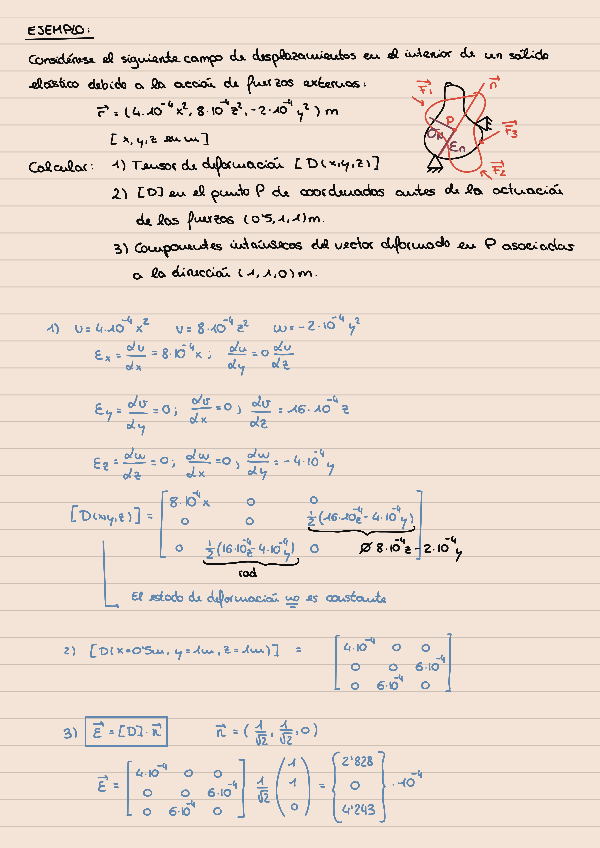 EJEMPLO:
Considérese el siguiente campo de desplazamientos en el interior de un sólido
elástico debido a la acción de fuerzas externas:
r⃗ = (4·10⁻⁴x², 8·10⁻⁴z², -2·10⁻⁴y²) m
[x, y, z en m]
F⃗₁
n⃗
P
σₙ
εₙ
F⃗₃
F⃗₂
Calcular: 1) Tensor de deformación [D(x,y,z)]
2) [D] en el punto P de coordenadas antes de la actuación
de las fuerzas (0'5,1,1)m.
3) Componentes intrínsecos del vector deformado en P asociadas
a la dirección (1,1,0)m.
1) u=4·10⁻⁴x² v=8·10⁻⁴z² w=-2·10⁻⁴y²
εx = du/dx = 8·10⁻⁴x; du/dy = 0 du/dz
εy = dv/dy = 0; dv/dx = 0; dv/dz = 16·10⁻⁴z
εz = dw/dz = 0; dw/dx = 0; dw/dy = -4·10⁻⁴y
[D(x,y,z)] = [8·10⁻⁴x 0 0
0 0 ½(16·10⁻⁴z - 4·10⁻⁴y)
0 ½(16·10⁻⁴z - 4·10⁻⁴y) 0] Ø 8·10⁻⁴z - 2·10⁻⁴y
rad
El estado de deformación no es constante
2) [D(x=0'5m, y=1m, z=1m)] = [4·10⁻⁴ 0 0
0 0 6·10⁻⁴
0 6·10⁻⁴ 0]
3) ε⃗ = [D]·n⃗ n⃗ = (1/√2, 1/√2, 0)
ε⃗ = [4·10⁻⁴ 0 0
0 0 6·10⁻⁴
0 6·10⁻⁴ 0] 1/√2 (1 1 0) = {2'828 0 4'243} ·10⁻⁴